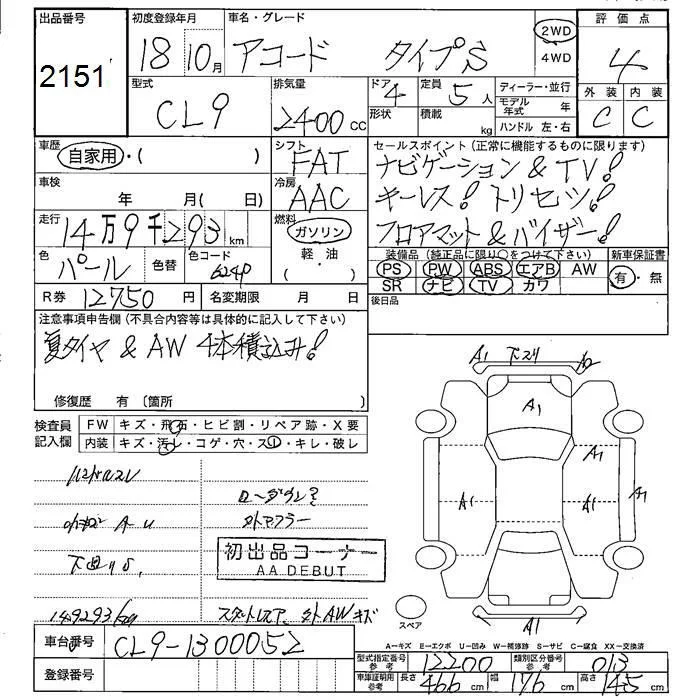 出品番号
2151
初度登録年月
18 10月
車名・グレード
アコード タイプS
2WD
4WD
評価点
4
外装 内装
C C
型式
CL9
排気量
2400 cc
ドア 4
形状
定員 5人
積載 kg
ディーラー・並行
モデル年式 年
ハンドル 左・右
車歴
自家用・( )
シフト
FAT
セールスポイント(正常に機能するものに限ります)
ナビゲーション & TV!
キーレス! トリセツ!
フロアマット & バイザー!
車検
年 月( 日)
冷房
AAC
走行
14万9千293 km
燃料
ガソリン
軽・油
( )
色
パール
色替
色コード
装備品(純正品に限り○をつけて下さい)
PS PW ABS エアB AW
SR ナビ TV カワ
新車保証書
有・無
R券 12750 円
名変期限 月 日
後日品
注意事項申告欄(不具合内容等は具体的に記入して下さい)
夏タイヤ & AW 4本積込み!
修復歴 有(箇所 )
検査員記入欄
FW キズ・飛石・ヒビ割・リペア跡・X要
内装 キズ・汚レ・コゲ・穴・スレ・キレ・破レ
A1 下スリ A2
A1
A1
A1
A1
A1
A1
ローダウン?
外マフラー
初出品コーナー
AA DEBUT
149293
外AWキズ
スペア
A=キズ E=エクボ U=凹み W=補修跡 S=サビ C=腐食 XX=交換済
車台番号 CL9-1300052
登録番号
型式指定番号 参考 12200
類別区分番号 参考 013
車庫証明用 参考 長さ 466 cm 幅 176 cm 高さ 145 cm